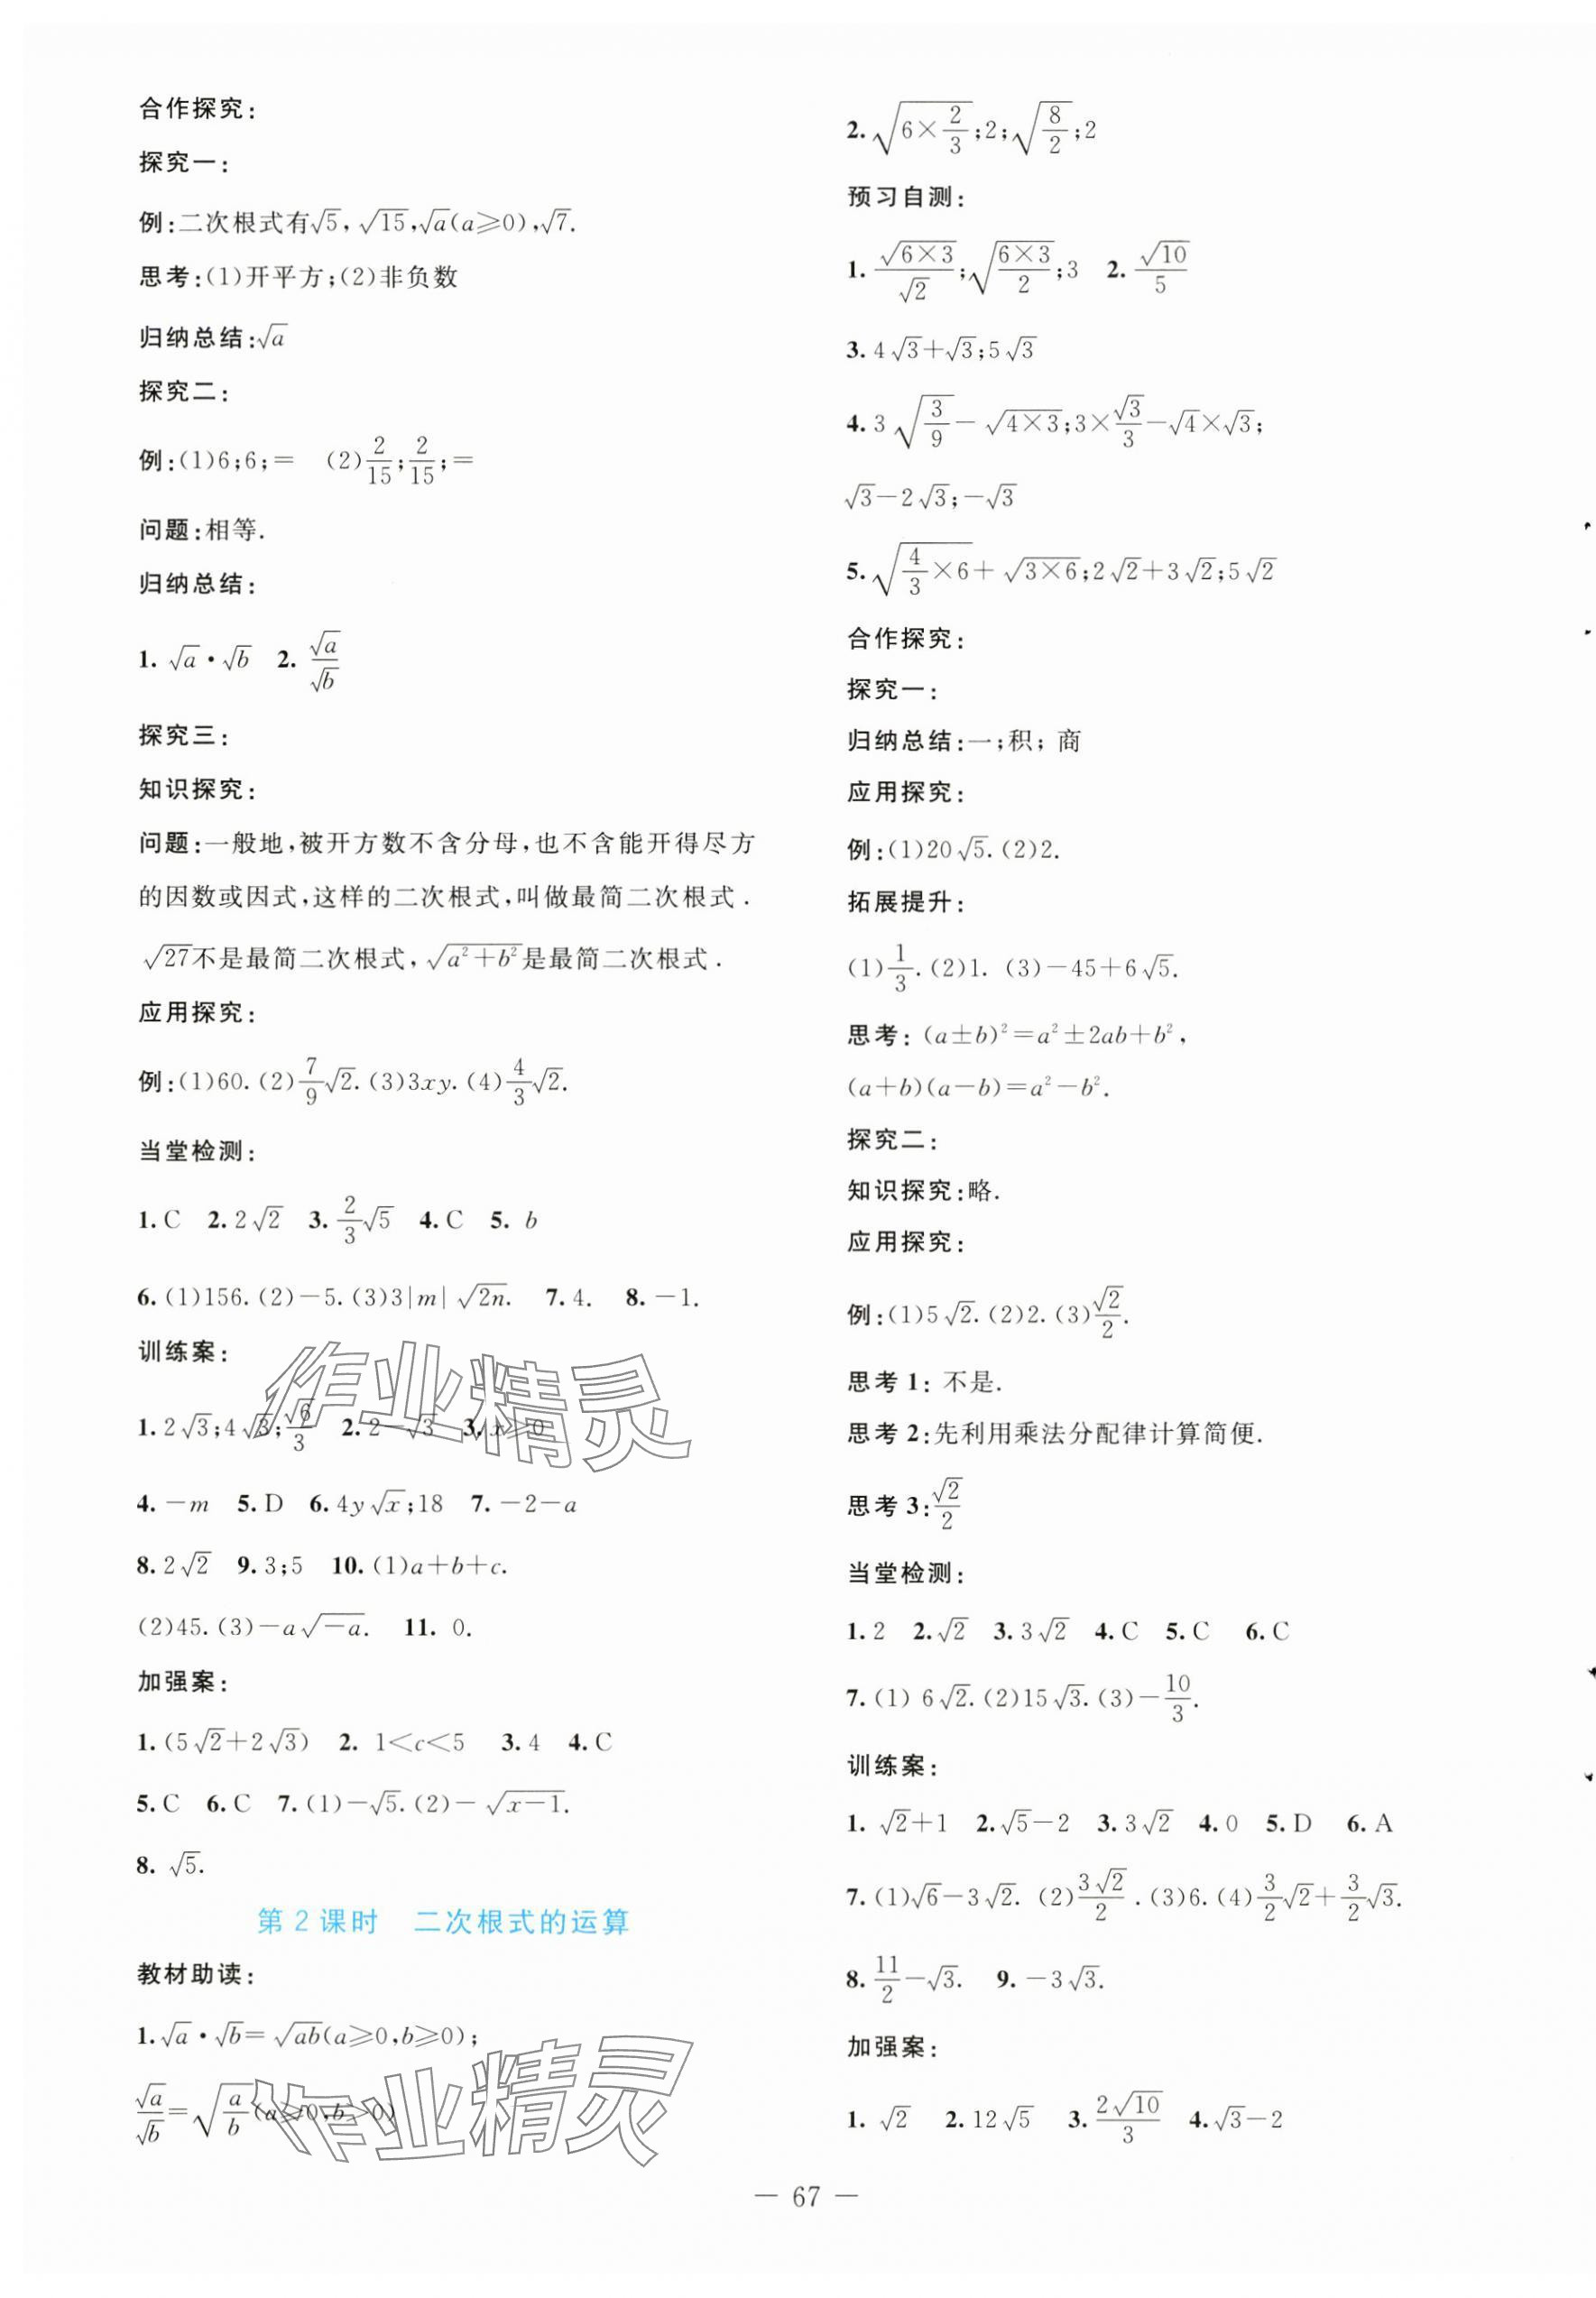 合作探究:
探究一:
例:二次根式有√5, √15,√a(a≥0),√7.
思考:(1)开平方;(2)非负数
归纳总结:√a
探究二:
例:(1)6;6;=  (2)2/15;2/15;=
问题:相等.
归纳总结:
1. √a·√b  2. √a/√b
探究三:
知识探究:
问题:一般地,被开方数不含分母,也不含能开得尽方
的因数或因式,这样的二次根式,叫做最简二次根式.
√27不是最简二次根式,√(a²+b²)是最简二次根式.
应用探究:
例:(1)60. (2)7/9√2. (3)3xy. (4)4/3√2.
当堂检测:
1. C  2. 2√2  3. 2/3√5  4. C  5. b
6. (1)156. (2)-5. (3)3|m|√(2n).  7. 4.  8. -1.
训练案:
1. 2√3;4√3;√6/3  2. 2-√3  3. x≥0
4. -m  5. D  6. 4y√x;18  7. -2-a
8. 2√2  9. 3;5  10. (1)a+b+c.
(2)45. (3)-a√(-a).  11. 0.
加强案:
1. (5√2+2√3)  2. 1<c<5  3. 4  4. C
5. C  6. C  7. (1)-√5. (2)-√(x-1).
8. √5.
第2课时  二次根式的运算
教材助读:
1. √a·√b=√(ab)(a≥0,b≥0);
√a/√b=√(a/b)(a≥0,b>0)
2. √(6×2/3);2;√(8/2);2
预习自测:
1. √(6×3)/√2;√((6×3)/2);3  2. √10/5
3. 4√3+√3;5√3
4. 3√(3/9)-√(4×3);3×√3/3-√4×√3;
√3-2√3;-√3
5. √(4/3×6)+√(3×6);2√2+3√2;5√2
合作探究:
探究一:
归纳总结:一;积;商
应用探究:
例:(1)20√5. (2)2.
拓展提升:
(1)1/3. (2)1. (3)-45+6√5.
思考:(a±b)²=a²±2ab+b²,
(a+b)(a-b)=a²-b².
探究二:
知识探究:略.
应用探究:
例:(1)5√2. (2)2. (3)√2/2.
思考1:不是.
思考2:先利用乘法分配律计算简便.
思考3:√2/2
当堂检测:
1. 2  2. √2  3. 3√2  4. C  5. C  6. C
7. (1)6√2. (2)15√3. (3)-10/3.
训练案:
1. √2+1  2. √5-2  3. 3√2  4. 0  5. D  6. A
7. (1)√6-3√2. (2)3√2/2. (3)6. (4)3/2√2+3/2√3.
8. 11/2-√3.  9. -3√3.
加强案:
1. √2  2. 12√5  3. 2√10/3  4. √3-2
— 67 —
作业精灵
作业精灵